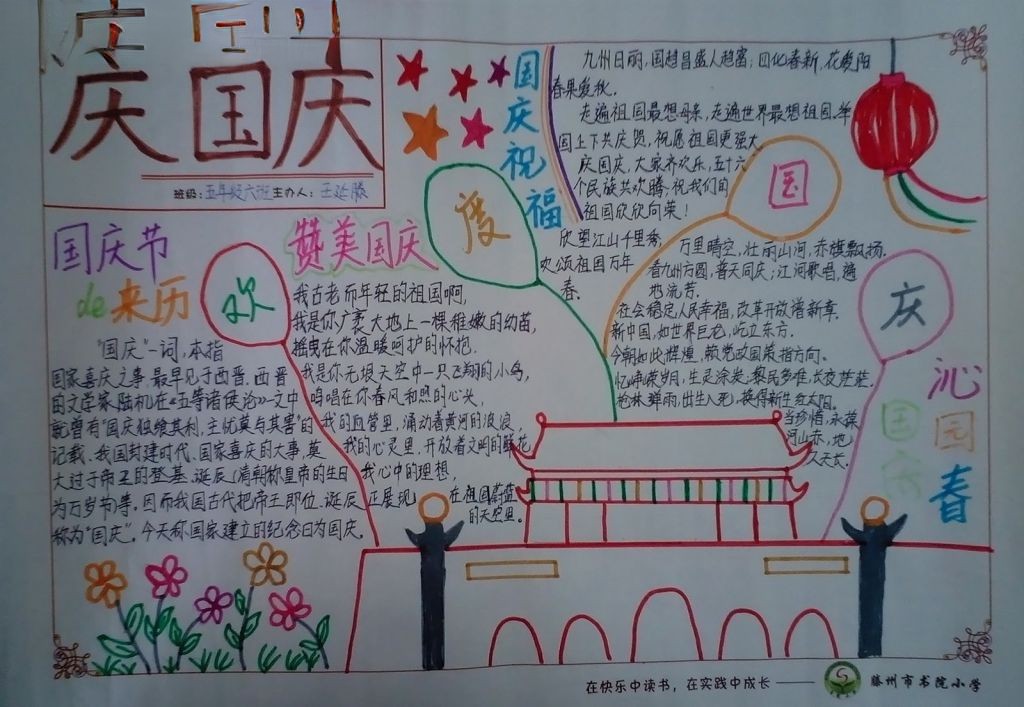 庆国庆
班级:五年级六班 主办人:王延滕
国庆节
de来历
"国庆"一词,本指
国家喜庆之事,最早见于西晋.西晋
的文学家陆机在《五等诸侯论》一文中
就曾有"国庆独飨其利,主忧莫与其害"的
记载、我国封建时代、国家喜庆的大事,莫
大过于帝王的登基、诞辰(清朝称皇帝的生日
为万岁节)等.因而我国古代把帝王即位、诞辰
称为"国庆".今天称国家建立的纪念日为国庆.
欢
度
国
庆
赞美国庆
我古老而年轻的祖国啊,
我是你广袤大地上一棵稚嫩的幼苗,
摇曳在你温暖呵护的怀抱.
我是你无垠天空中一只飞翔的小鸟,
鸣唱在你春风和煦的心头,
我的血管里,涌动着黄河的波浪,
我的心灵里,开放着文明的
我心中的理想,
正展现 在祖国蔚蓝
的天空里.
国庆祝福
九州日丽,国趋昌盛人趋富;四化春新,花爱阳
春果爱秋.
走遍祖国最想母亲,走遍世界最想祖国,举
国上下共庆贺,祝愿祖国更强大
庆国庆,大家齐欢乐,五十六
个民族共欢腾,祝我们的
祖国欣欣向荣!
欣望江山千里秀,
欢颂祖国万年
春.
沁园春
国庆
万里晴空,壮丽山河,赤旗飘扬.
看九州方圆,普天同庆;江河歌唱,遍
地流芳.
社会稳定,人民幸福,改革开放谱新章.
新中国,如世界巨龙,屹立东方.
今朝如此辉煌,赖党政国策指方向.
忆峥嵘岁月,生灵涂炭,黎民多难,长夜茫茫.
枪林弹雨,出生入死,换得新生红太阳.
当珍惜,永葆
河山赤,地
久天长.
在快乐中读书,在实践中成长—— 滕州市书院小学